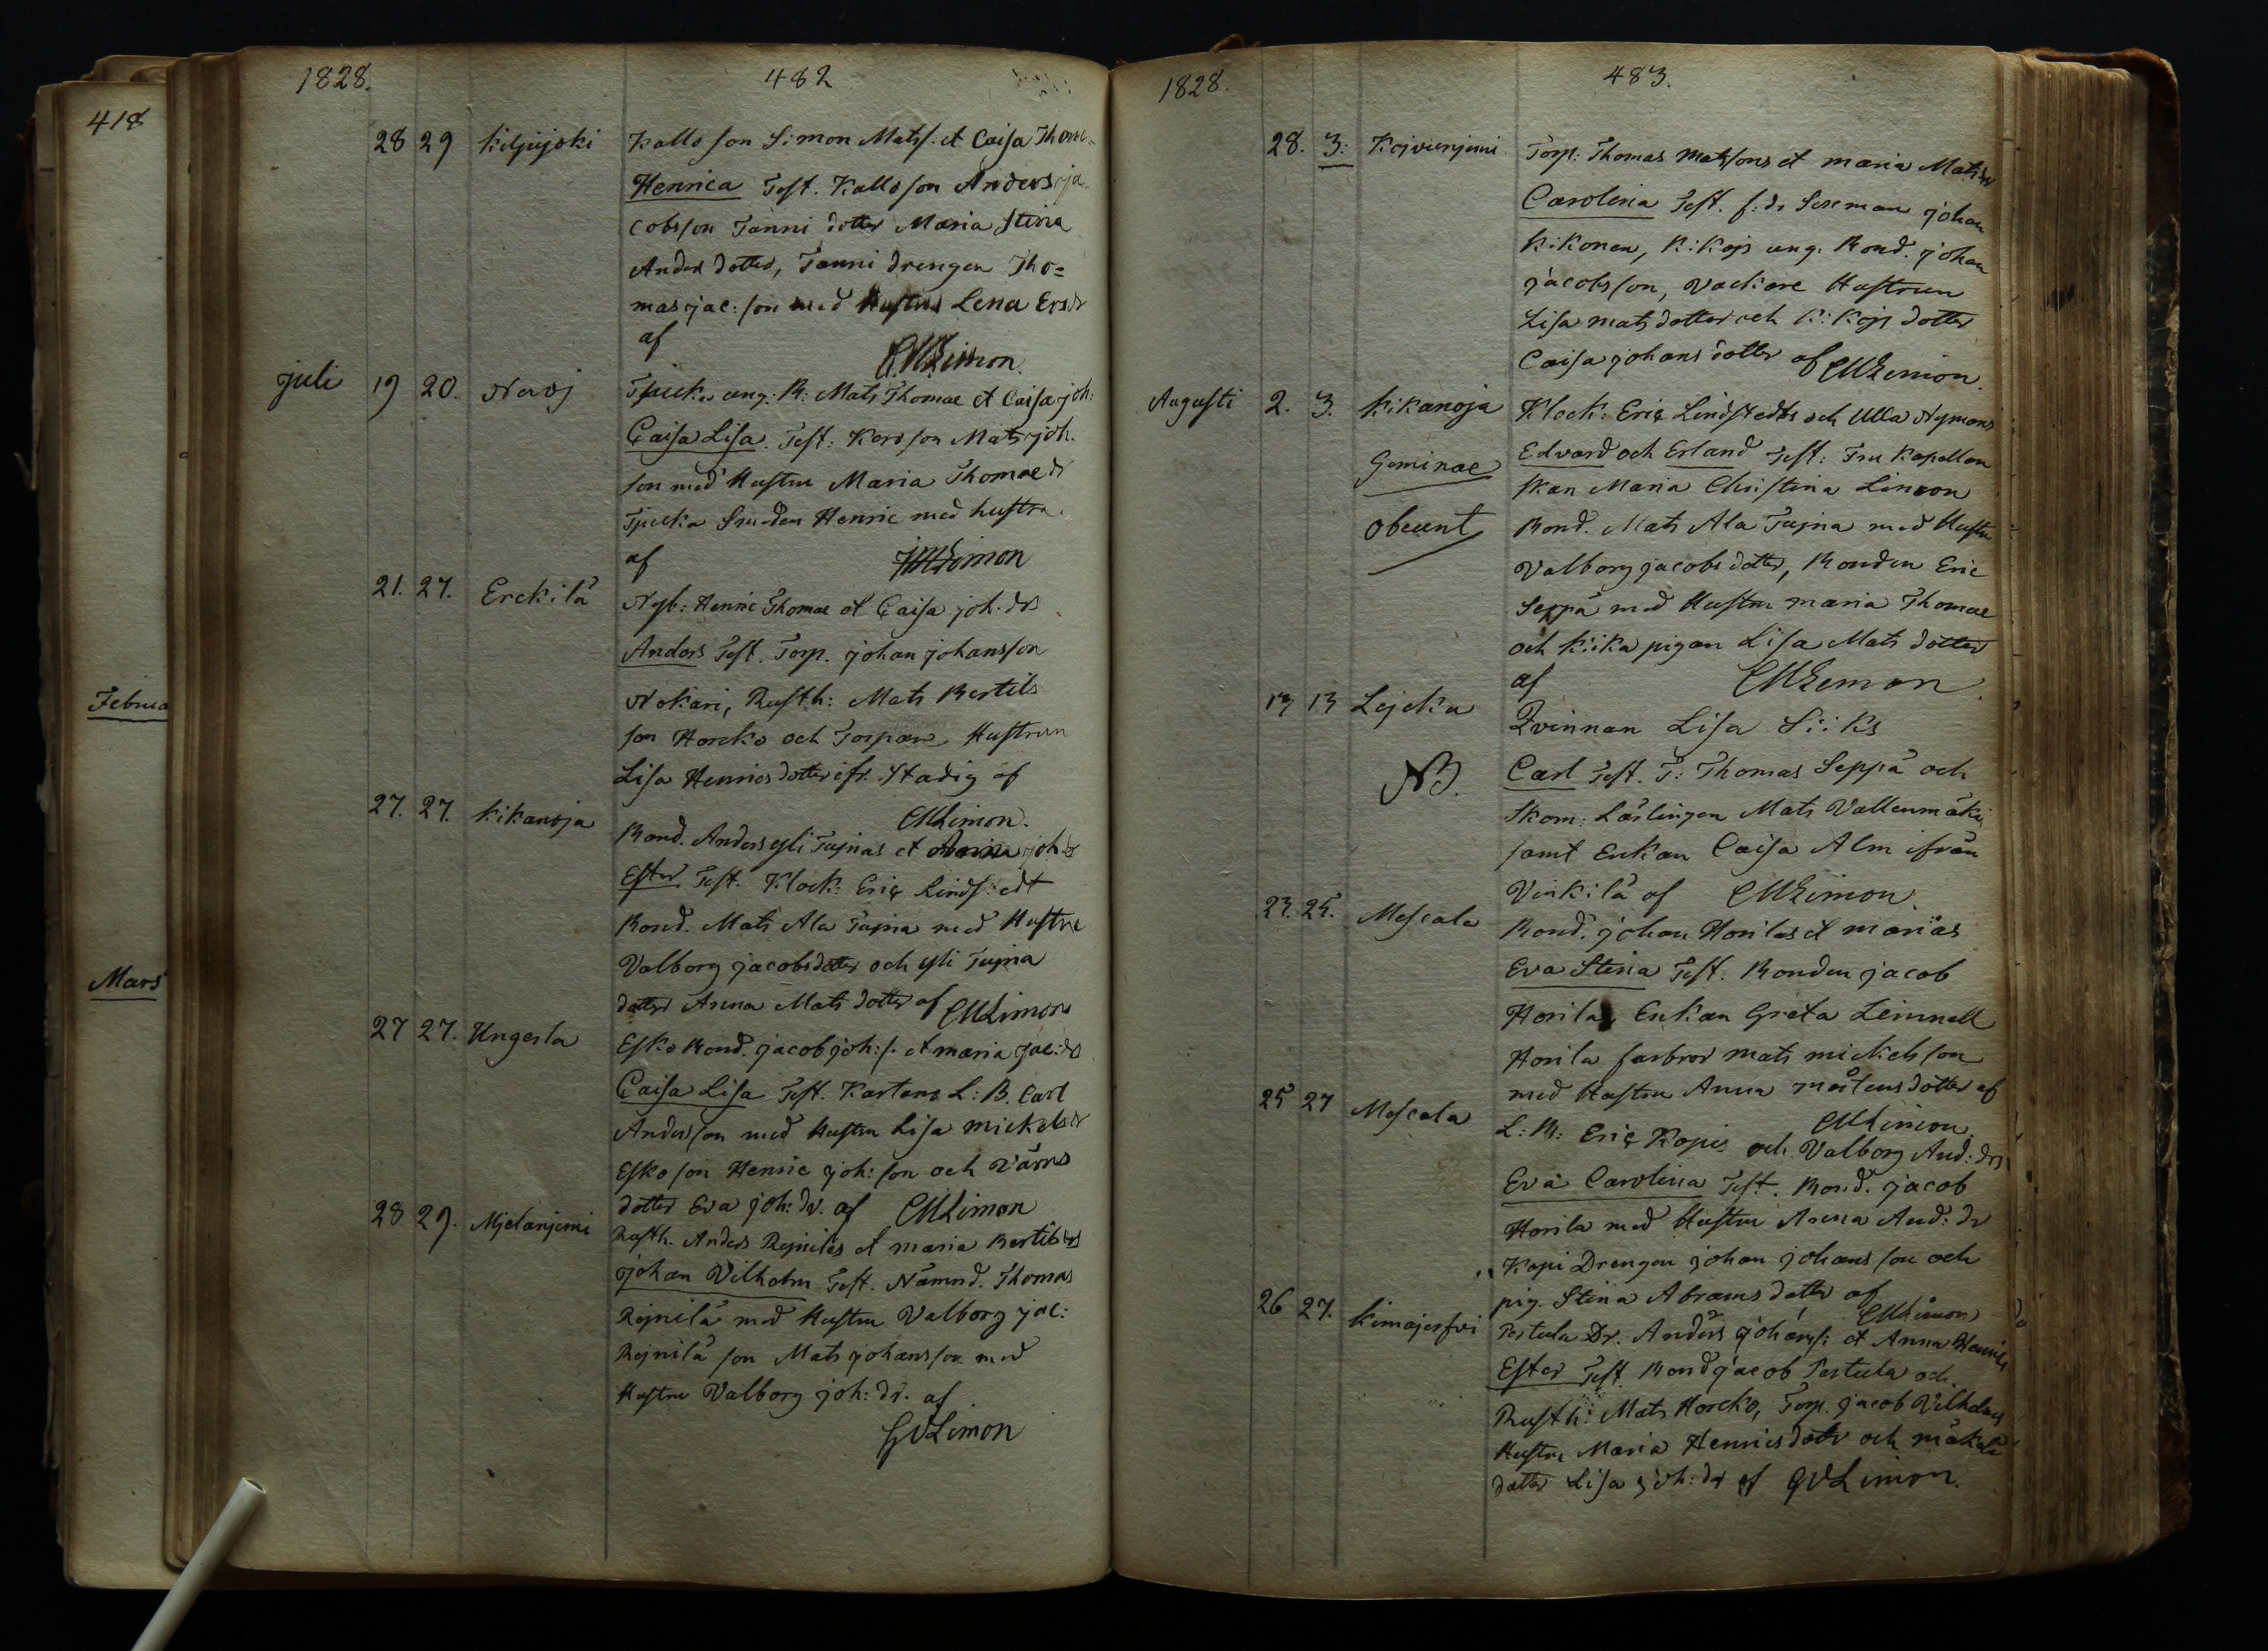 418
Februa
Mars
1828.
482
28 29 Kiljujoki Kallo son Simon Mats. et Caisa Thom=
Henrica Test. Kallo son Anders ja=
cobsson Tanni dotter Maria Stina
Anders dotter, Tanni drengen Tho=
mas jac: son med Hustru Lena Ersdr
af
juli 19 20. Nevoj ung. B: Mats Thomae et Caisa joh:
Caisa Lisa. Test: Kero son Mats joh.
son med Hustru Maria Thomae dr
Henric med hustru
af
21. 27. Erckilä Nyb: Henric Thomae et Caisa joh. drs
Anders Test. Torp. johan johansson
Nokari, Rusth: Mats Bertils
son Horcko och Torpare Hustrun
Lisa Henrics dotter ifr. Stadig af
CMLimon.
27. 27. Kikanoja Bond. Anders yli Tujnas et joh:
Ester Test. Klock: Eric Linds:edt
Bond. Mats Ala Tujna med Hustru
Valborg jacobsdotter och yli Tujna
dotter Anna Mats dotter af CMLimon
27 27. Ungerla Esko Bond. jacob joh:s. et maria jac: drs
Caisa Lisa Test. Kartano L: B. Carl
Andersson med Hustru Lisa mickelsdr
Esko son Henric joh: son och Värns
dotter Eva joh: dr. af CMLimon
28 29. Mjelanjemi Rusth. Anders Rejniläs et maria Bertils drs
johan Vilhelm Test. Nämnd. Thomas
Rejnilä med Hustru Valborg jac:
Rejnilä son Mats johansson med
Hustru Valborg joh: dr. af
GVLimon
1828.
483.
28. 3: Kojvunjemi Torp: Thomas Matssons et maria Mats drs
Carolina Test. f: d: johan
Kikonen, Kikojs ung. Bond. johan
jacobsson, Vackare Hustrun
Lisa mats dotter och Kikojs dotter
Caisa johans dotter af CMLimon.
Augusti 2. 3. Kikanoja Klock: Eric Lindstedts och Ulla Nymans
Geminae Edvard och Erland Test: Fru Kapellan
skan Maria Christina Limon
obeunt Bond. Mats Ala Tujna med Hustru
Valborg jacobs dotter, Bonden Eric
Seppä med Hustru maria Thomae
och Kiika pigan Lisa Mats dotter
af CMLimon
13 13 Lejcku Qvinnan Lisa S::ks
NB. Carl Test. T: Thomas Seppä och
Skom: Lärlingen Mats Vallenmäki
samt Enkan Caisa Alm ifrån
Vinkilä af CMLimon.
23. 25. Mescala Bond. johan Horilas et marias
Eva Stina Test. Bonden jacob
Horila, Enkan Greta Lemnell
Horila farbror mats mickelsson
med Hustru Anna mårtensdotter af
CMLimon.
25 27 Mescala L: B: Eric Kopis och Valborg And: drs
Eva Carolina Test. Bond. jacob
Horila med Hustru Anna And: dr
Kopi Drengen johan johansson och
pig. Stina Abrams dotter af
CMLimon
26 27. Kimajerfvi Pertula Dr. Anders johans: et Anna Henrics
Ester Test. Bond jacob Pertula och
Rusth: Mats Horcko, Torp. jacob Vilhelms
Hustru Maria Henricsdotr och mäkelä
dotter Lisa joh: dr af GVLimon.